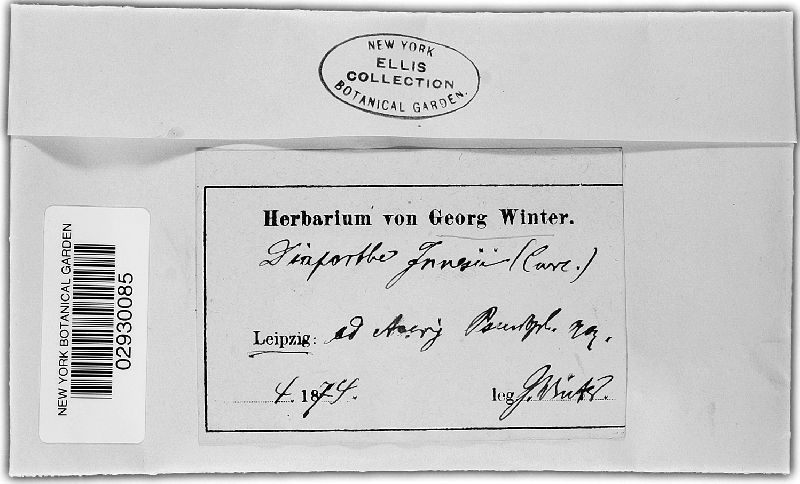 NEW YORK
ELLIS
COLLECTION
BOTANICAL GARDEN.
NEW YORK BOTANICAL GARDEN
02930085
Herbarium von Georg Winter.
Diaporthe Innesii (Curr.)
Leipzig: ad Aceris Pseudopl.
4. 1874.
leg G. Winter.